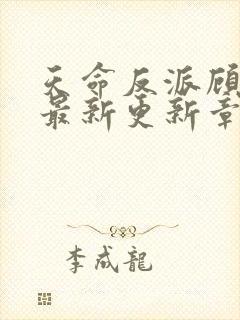 天命反派顾
最新更新章
李成龍